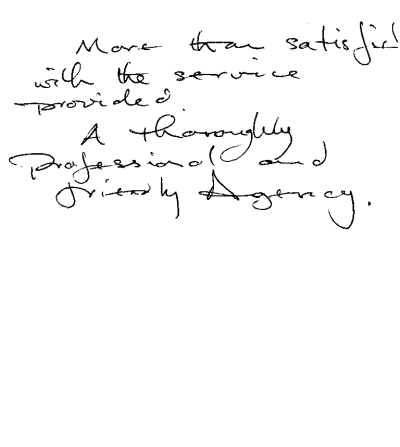 More than satisfied
with the service
provided.
A thoroughly
Professional and
friendly Agency.